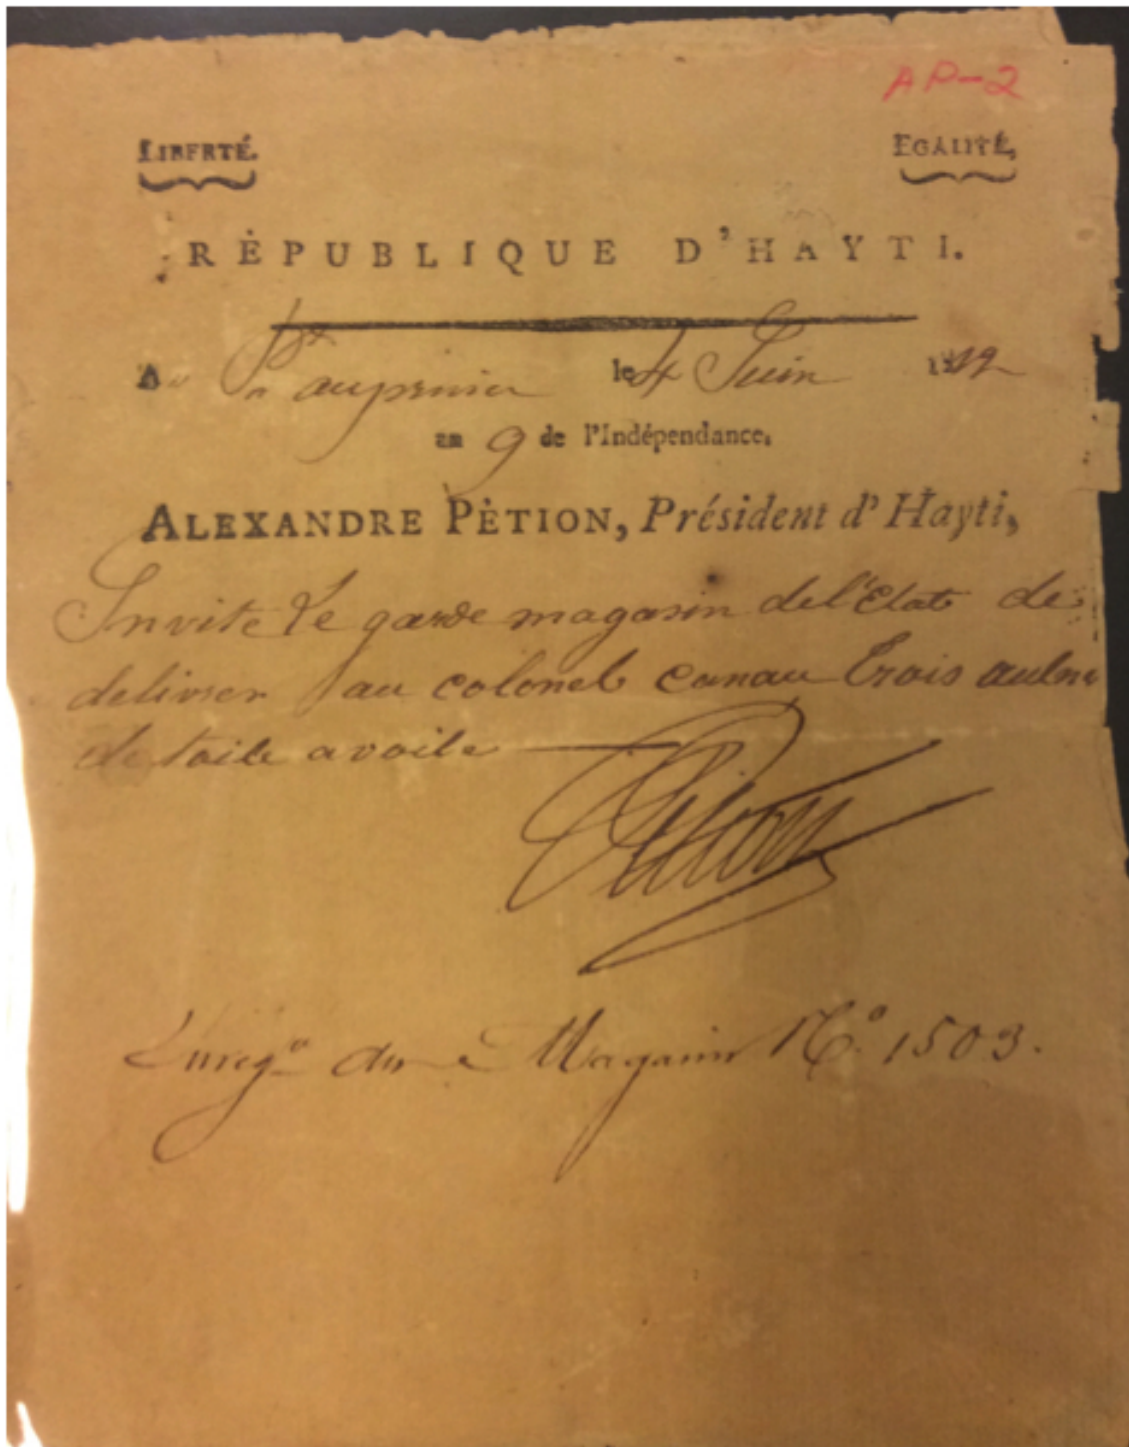 AP-2
LIBERTÉ. EGALITÉ,
RÉPUBLIQUE D'HAYTI.
Au Port au prince le 4 Juin 1812
an 9 de l'Indépendance.
ALEXANDRE PÈTION, Président d'Hayti,
Invite le garde magasin de l'Etat de
delivrer au colonel canau trois aulne
de toile a voile
Pétion
Enregé au Magasin No. 1503.